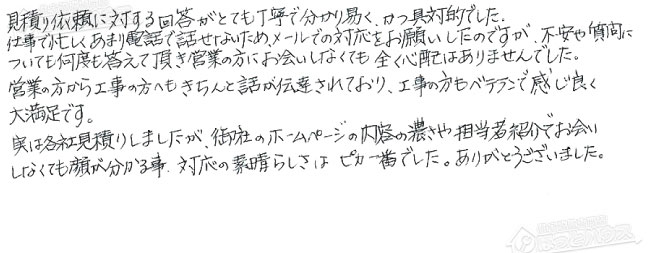 見積り依頼に対する回答がとても丁寧で分かり易く、かつ具対的でした。
仕事で忙しくあまり電話で話せないため、メールでの対応をお願いしたのですが、不安や質問に
ついても何度も答えて頂き営業の方にお会いしなくても全く心配はありませんでした。
営業の方から工事の方へもきちんと話が伝達されており、工事の方もベテランで感じ良く
大満足です。
実は各社見積りしましたが、御社のホームページの内容の濃さや担当者紹介でお会い
しなくても顔が分かる事、対応の素晴らしさはピカ一番でした。ありがとうございました。